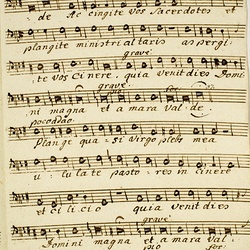 de Accingite vos Sacerdotes et
plangite ministri altaris aspergi.
grave
te vos Cinere. quia venit dies Domi
grave. for
ni magna et amara Valde.
poco adao
Plange qua_ si Virgo plebs mea
u_ lulate pasto_ res in cinere
et cilicio quia venit dies
grave
Domini magna et amara Val_
pio for